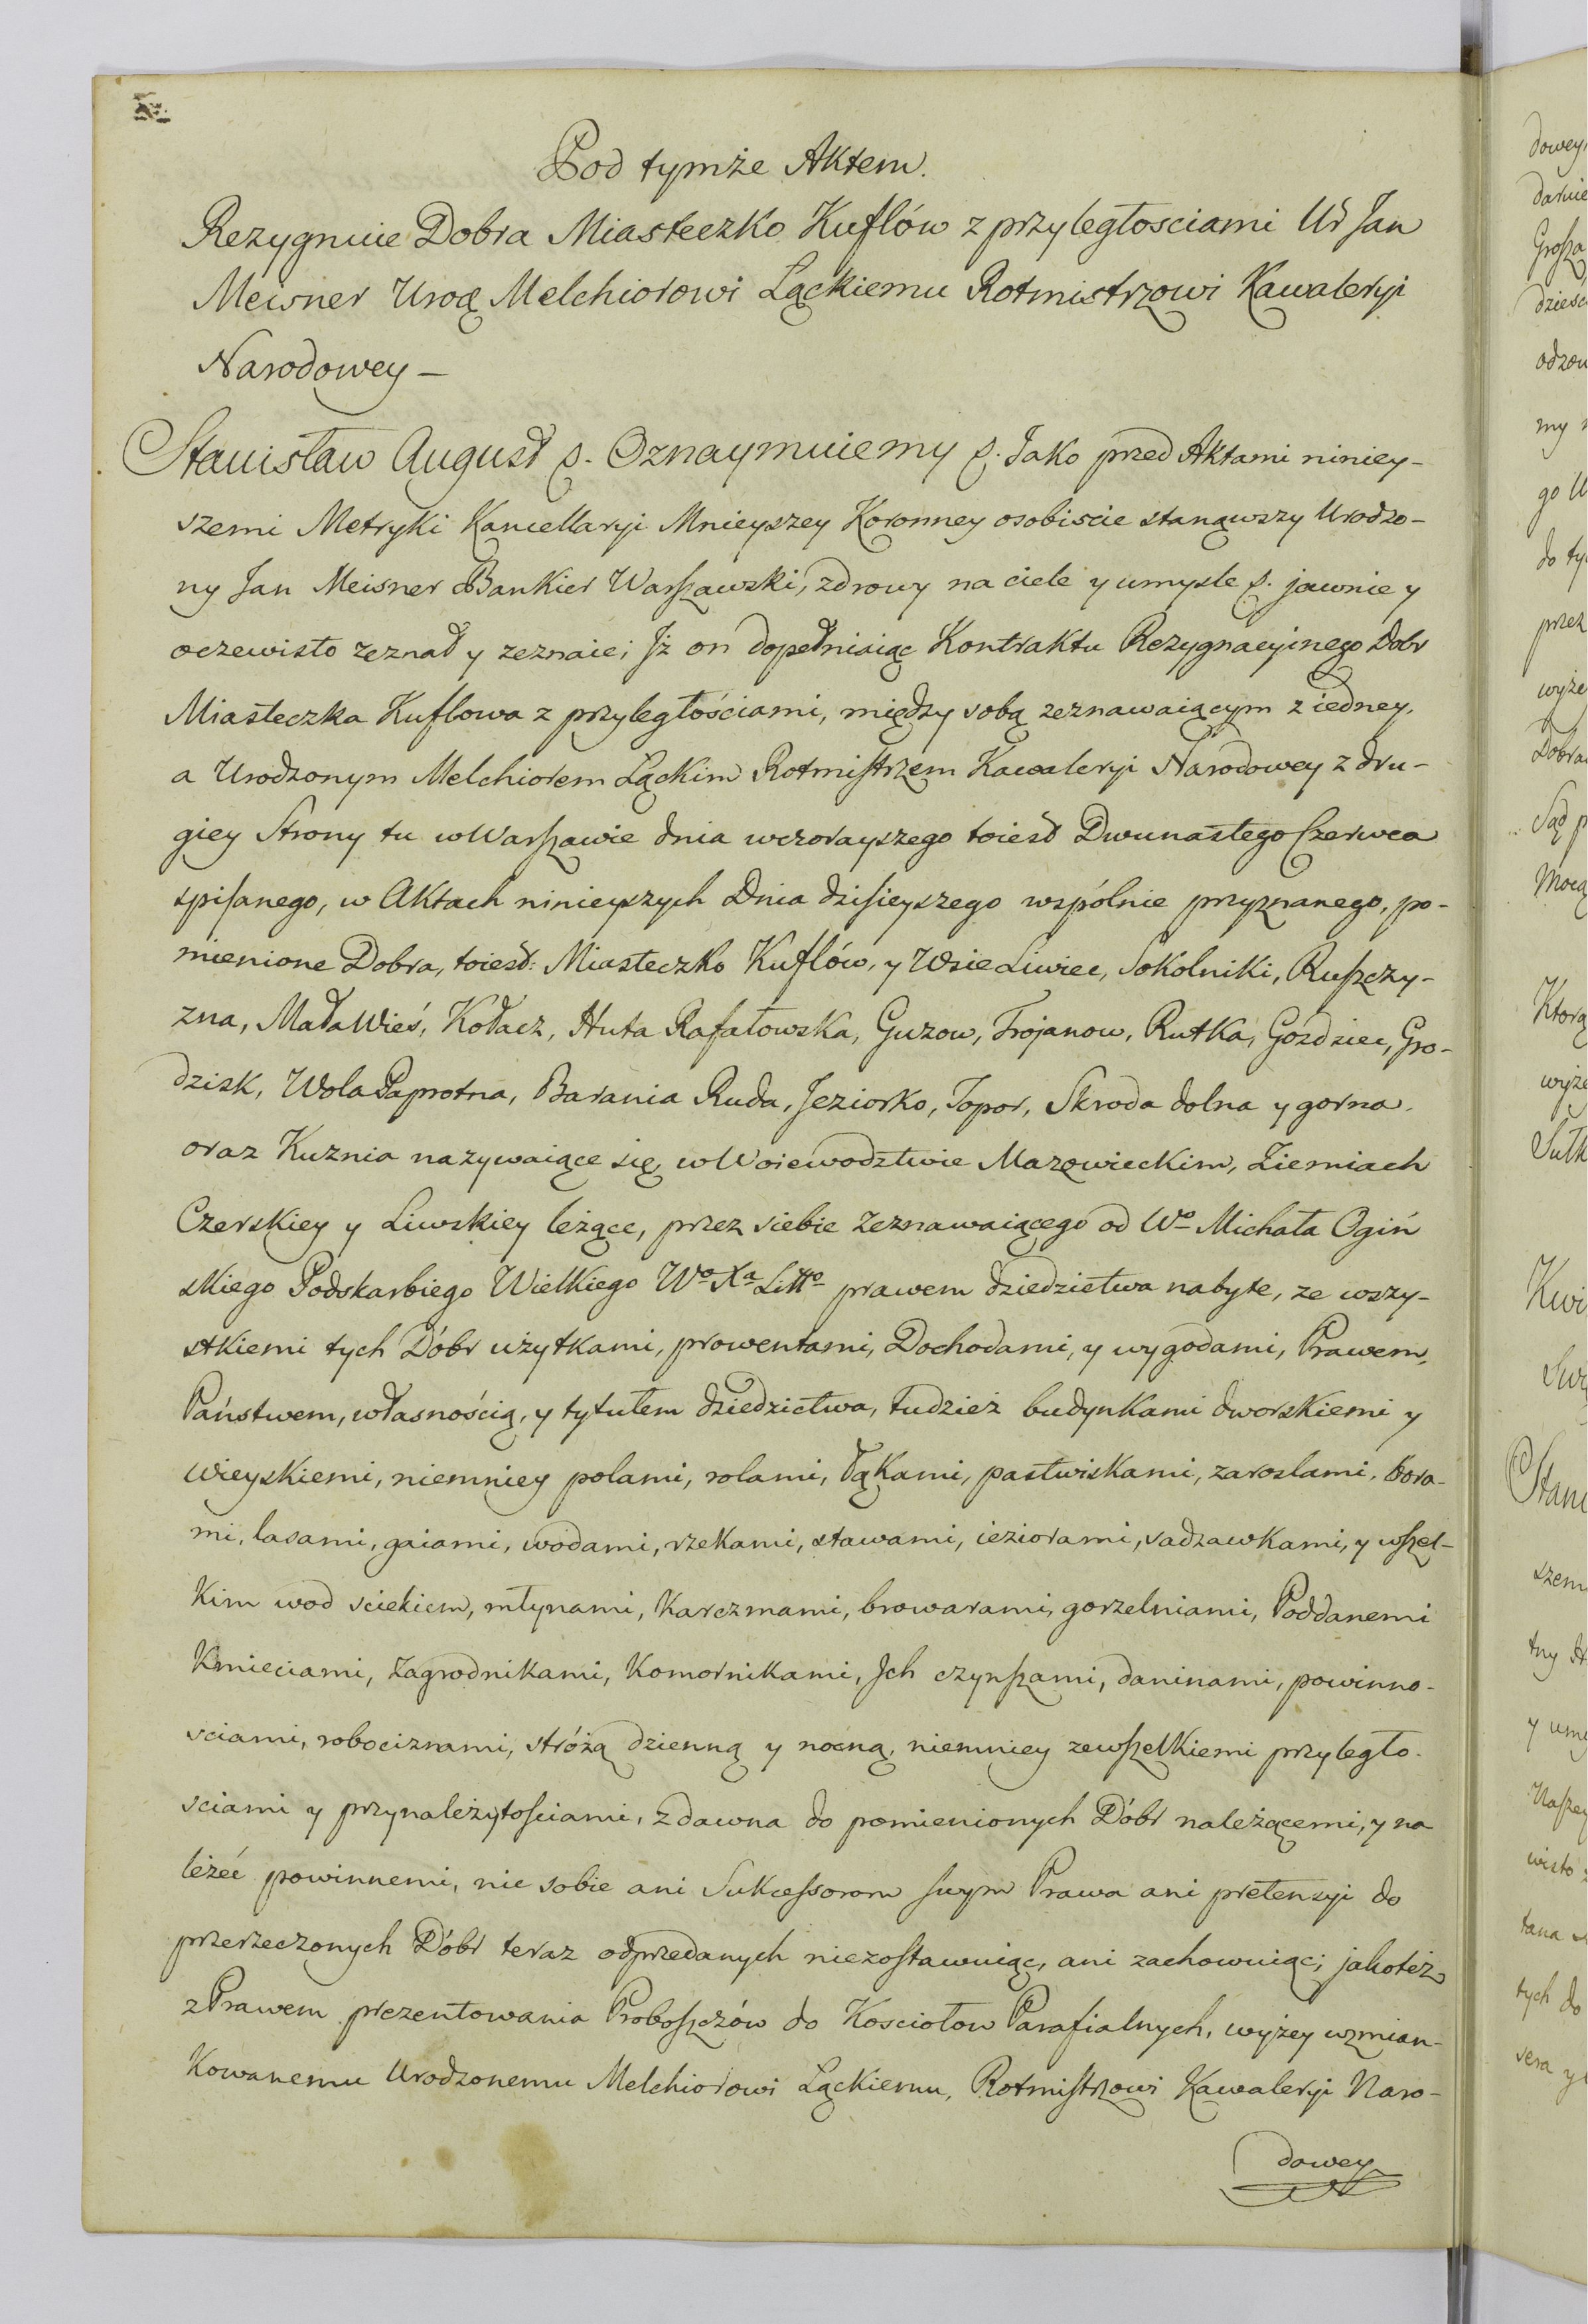 Pod tymże Aktem.
Rezygnuie Dobra Miasteczko Kuflów z przyległosciami Ur Jan
Meisner Urod Melchiorowi Łąckiemu Rotmistrzowi Kawaleryi
Narodowey –
Stanisław August p. Oznaymuiemy p. Jako przed Aktami niniey-
szemi Metryki Kancellaryi Mnieyszey Koronney osobiscie stanąwszy Urodzo-
ny Jan Meisner Bankier Warszawski, zdrowy na ciele y umysle p. jawnie y
oczewisto zeznał y zeznaie; Jż on dopełniaiąc Kontraktu Rezygnacyinego Dobr
Miasteczka Kuflowa z przyległościami, między sobą zeznawaiącym z iedney,
a Urodzonym Melchiorem Łąckim Rotmistrzem Kawaleryi Narodowey z dru-
giey Strony tu w Warszawie dnia wczorayszego toiest Dwunastego Czerwca
spisanego, w Aktach ninieyszych Dnia dzisieyszego wspólnie przyznanego, po-
mienione Dobra, toiest: Miasteczko Kuflów, y Wsie Liwiec, Sokolniki, Ruszczy-
zna, Mała Wieś, Kołacz, Huta Rafałowska, Guzow, Trojanow, Rutka, Gozdziec, Gro-
dzisk, Wola Paprotna, Barania Ruda, Jeziorko, Topor, Skroda dolna y gorna.
oraz Kuznia nazywaiące się, w Woiewodztwie Mazowieckim, Ziemiach
Czerskiey y Liwskiey leżące, przez siebie zeznawaiącego od Wo Michała Ogiń
skiego Podskarbiego Wielkiego Wo Xa Litto prawem dziedzictwa nabyte, ze wszy-
stkiemi tych Dóbr użytkami, prowentami, Dochodami, y wygodami, Prawem,
Państwem, własnością, y tytułem dziedzictwa, tudzież budynkami dworskiemi y
wieyskiemi, niemniey polami, rolami, łąkami, pastwiskami, zaroslami, bora-
mi, lasami, gaiami, wodami, rzekami, stawami, ieziorami, sadzawkami, y wszel-
kim wod sciekiem, młynami, karczmami, browarami, gorzelniami, Poddanemi
Kmieciami, Zagrodnikami, Komornikami, Jch czynszami, daninami, powinno-
sciami, robociznami, stróżą dzienną y nocną, niemniey zewszelkiemi przyległo-
sciami y przynależytościami, zdawna do pomienionych Dóbr należącemi, y na
leżéć powinnemi, nic sobie ani Sukcessorom swym Prawa ani pretensyi do
przerzeczonych Dóbr teraz odprzedanych niezostawuiąc, ani zachowuiąc; jakoteż
z Prawem prezentowania Proboszczów do Kosciołow Parafialnych, wyżey wzmian-
kowanemu Urodzonemu Melchiorowi Łąckiemu, Rotmistrzowi Kawaleryi Naro-
dowey